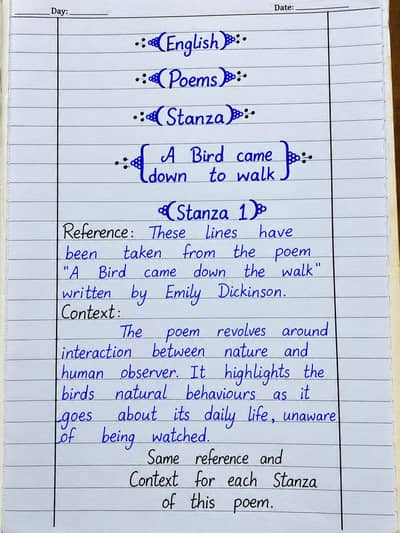 Day:
Date:
(English)
(Poems)
(Stanza)
A Bird came
down to walk
(Stanza 1)
Reference: These lines have
been taken from the poem
"A Bird came down the walk"
written by Emily Dickinson.
Context:
The poem revolves around
interaction between nature and
human observer. It highlights the
birds natural behaviours as it
goes about its daily life, unaware
of being watched.
Same reference and
Context for each Stanza
of this poem.